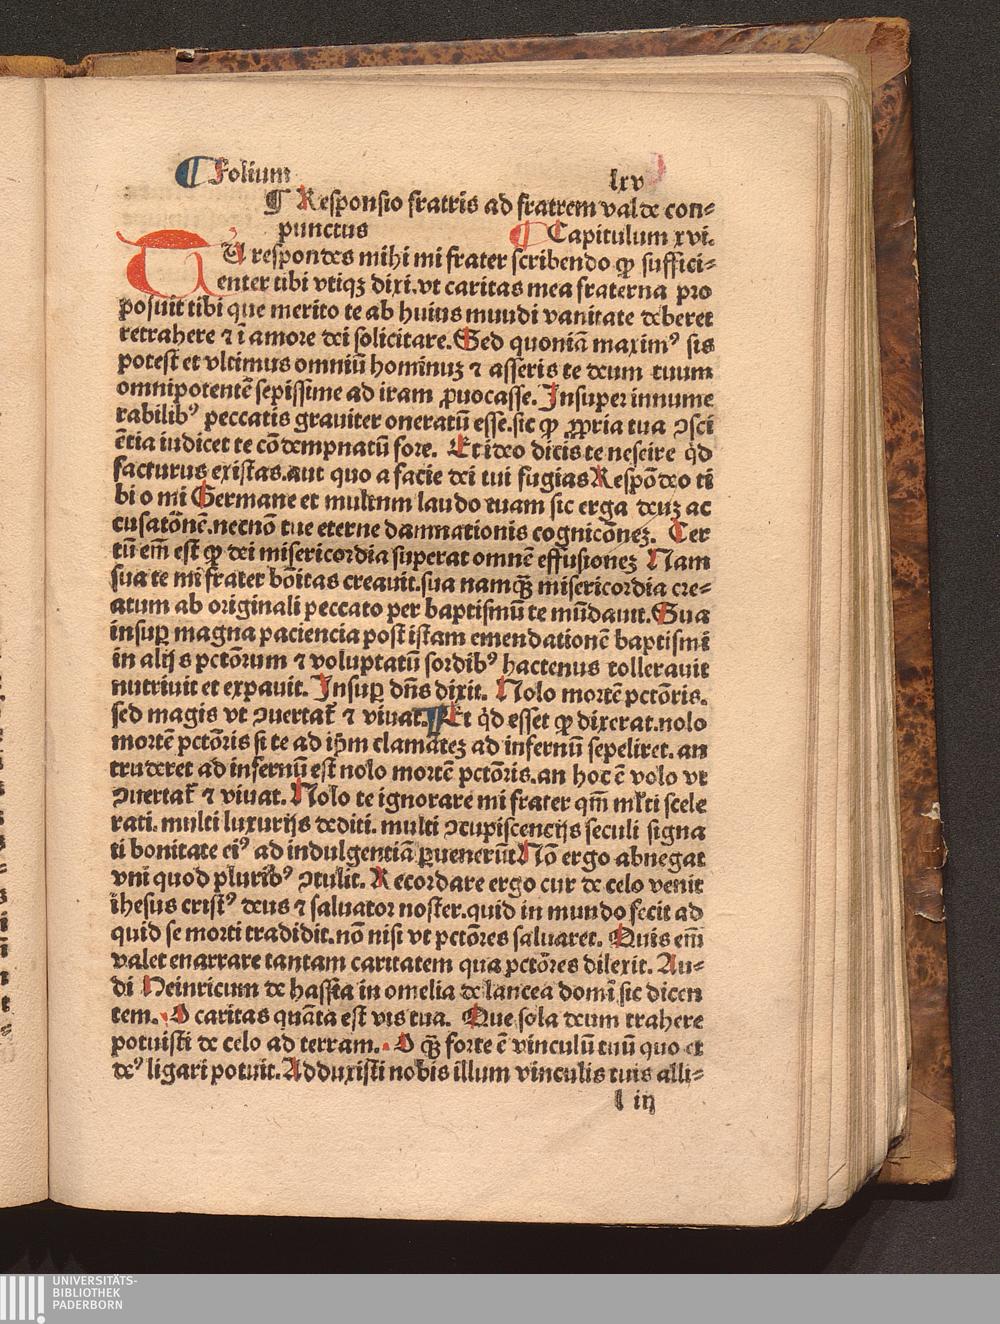 ¶ Folium lxv
¶ Responsio fratris ad fratrem valde con⸗
punctus ¶ Capitulum xvi.
TU respondes mihi mi frater scribendo ꝙ suffici⸗
enter tibi vtiqꝫ dixi.vt caritas mea fraterna pro
posuit tibi que merito te ab huius mundi vanitate deberet
retrahere ⁊ ī amore dei solicitare.Sed quoniā maximꝰ sis
potest et vltimus omniū hominuꝫ ⁊ asseris te deum tuum
omnipotentē sepissime ad iram ꝓuocasse. Insuper innume
rabilibꝰ peccatis grauiter oneratū esse.sic ꝙ ꝓpria tua ↄsci
ētia iudicet te cōdempnatū fore. Et ideo dicis te nescire qd
facturus existas.aut quo a facie dei tui fugias Respōdeo ti
bi o mi Germane et multum laudo tuam sic erga deuꝫ ac
cusatōnē.necnō tue eterne damnationis cognicōneꝫ. Cer
tū em̄ est ꝙ dei misericordia superat omnē effusioneꝫ Nam
sua te mi frater bōitas creauit.sua namqꝫ misericordia cre⸗
atum ab originali peccato per baptismū te mūdauit.Sua
insuꝑ magna paciencia post istam emendationē baptismi
in alijs pctōrum ⁊ voluptatū sordibꝰ hactenus tollerauit
nutriuit et expauit. Insuꝑ dn̄s dixit. Nolo mortē pctōris.
sed magis vt ↄuertat̄ ⁊ viuat.¶ Et qd esset ꝙ dixerat.nolo
mortē pctōris si te ad ip̄m clamāteꝫ ad infernū sepeliret. an
truderet ad infernū est nolo mortē pctōris.an hoc ē volo vt
ↄuertat̄ ⁊ viuat. Nolo te ignorare mi frater qm̄ mlti scele
rati. multi luxurijs dediti. multi ↄcupiscencijs seculi signa
ti bonitate eiꝰ ad indulgentiā ꝑuenerūt Nō ergo abnegat
vni quod pluribꝰ ↄtulit. Recordare ergo cur de celo venit
ihesus cristꝰ deus ⁊ saluator noster.quid in mundo fecit ad
quid se morti tradidit.nō nisi vt pctōres saluaret. Quis em̄
valet enarrare tantam caritatem qua pctōres dilexit. Au⸗
di Heinricum de hassia in omelia de lancea domī sic dicen
tem. O caritas quāta est vis tua. Que sola deum trahere
potuisti de celo ad terram. O qꝫ forte ē vinculū tuū quo et
deꝰ ligari potuit. Adduxisti nobis illum vinculis tuis alli⸗
l iij
UNIVERSITÄTS-
BIBLIOTHEK
PADERBORN